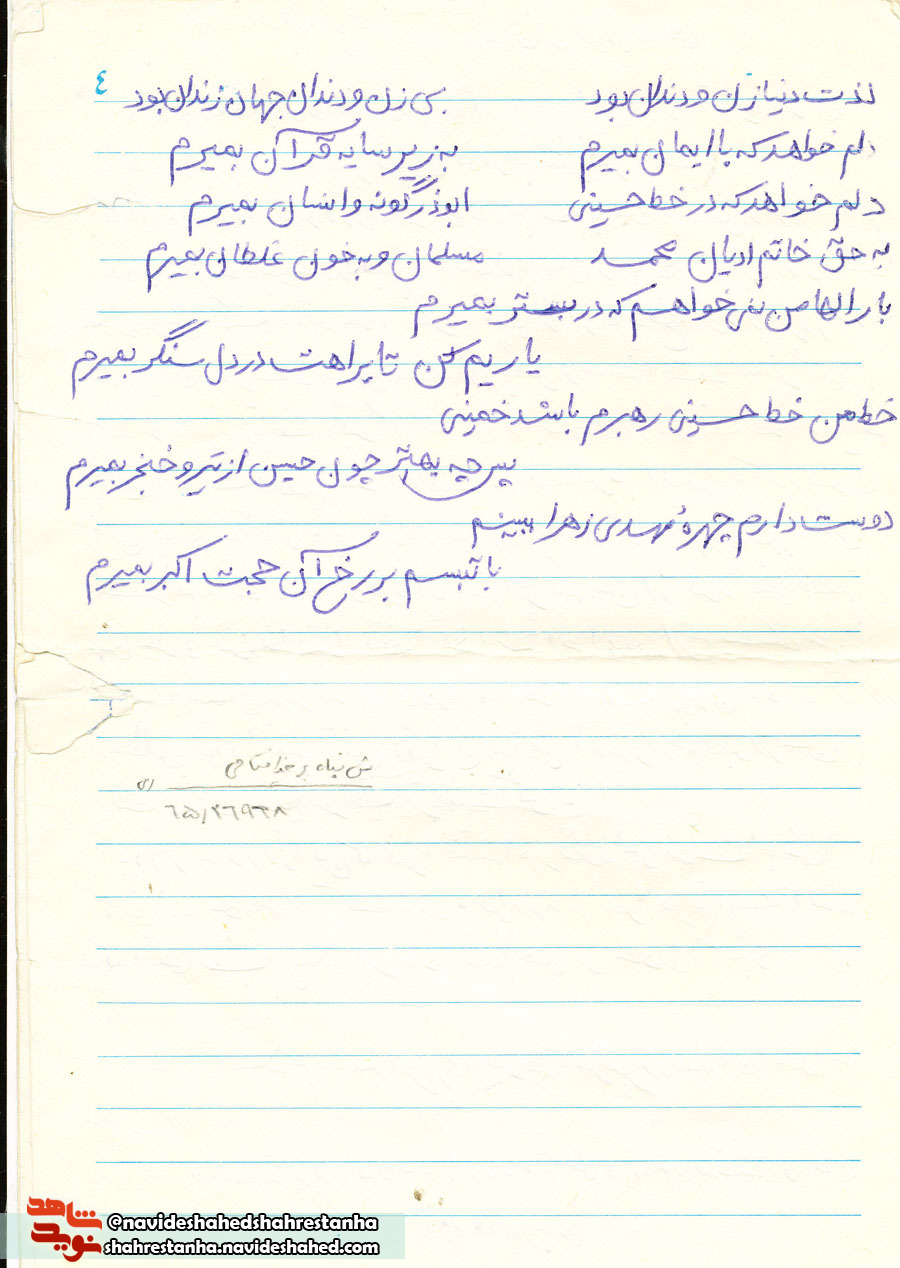 ٤
لذت دنیا زن و دندان بود بی زن و دندان جهان زندان بود
دلم خواهد که با ایمان بمیرم به زیر سایه قرآن بمیرم
دلم خواهد که در خط حسینی ابوذر گونه و انسان بمیرم
به حق خاتم ادیان محمد مسلمان و به خون غلطان بمیرم
بارالها من نمی خواهم که در بستر بمیرم
یاریم کن تا براهت در دل سنگر بمیرم
خط من خط حسینی رهبرم باشد خمینی
پس چه بهتر چون حسین از تیر و خنجر بمیرم
دوست دارم چهرهٔ مهدی زهرا ببینم
با تبسم بر رخ آن حجت اکبر بمیرم
شاهد
نوید
@navideshahedshahrestanha
shahrestanha.navideshahed.com